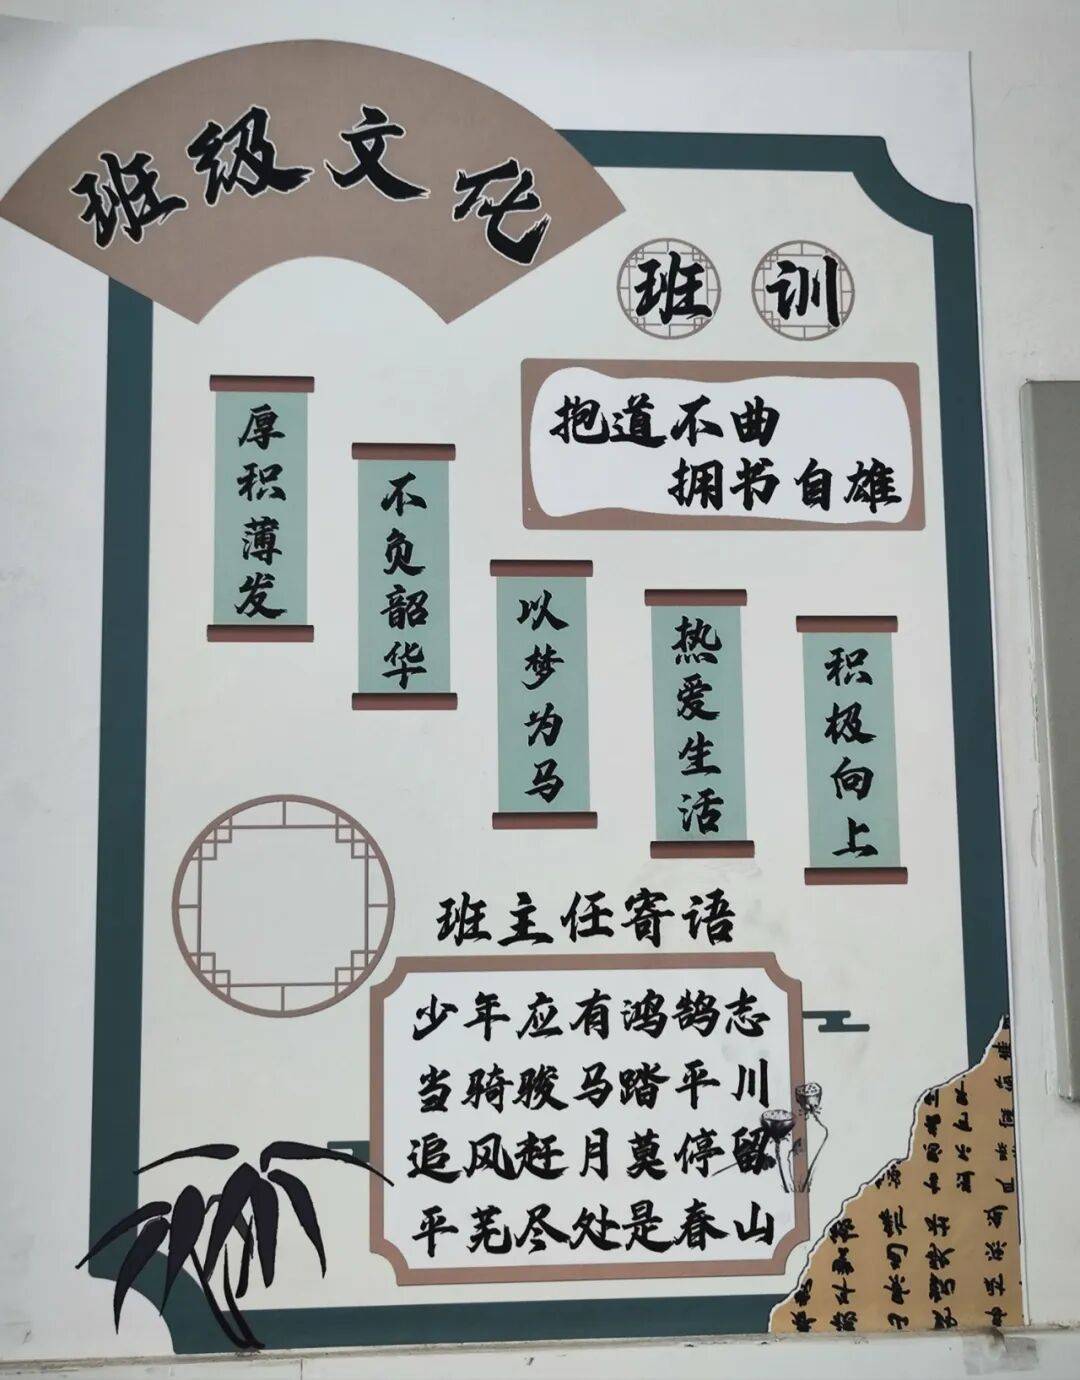 班级文化
班训
抱道不曲
拥书自雄
厚积薄发
不负韶华
以梦为马
热爱生活
积极向上
班主任寄语
少年应有鸿鹄志
当骑骏马踏平川
追风赶月莫停留
平芜尽处是春山